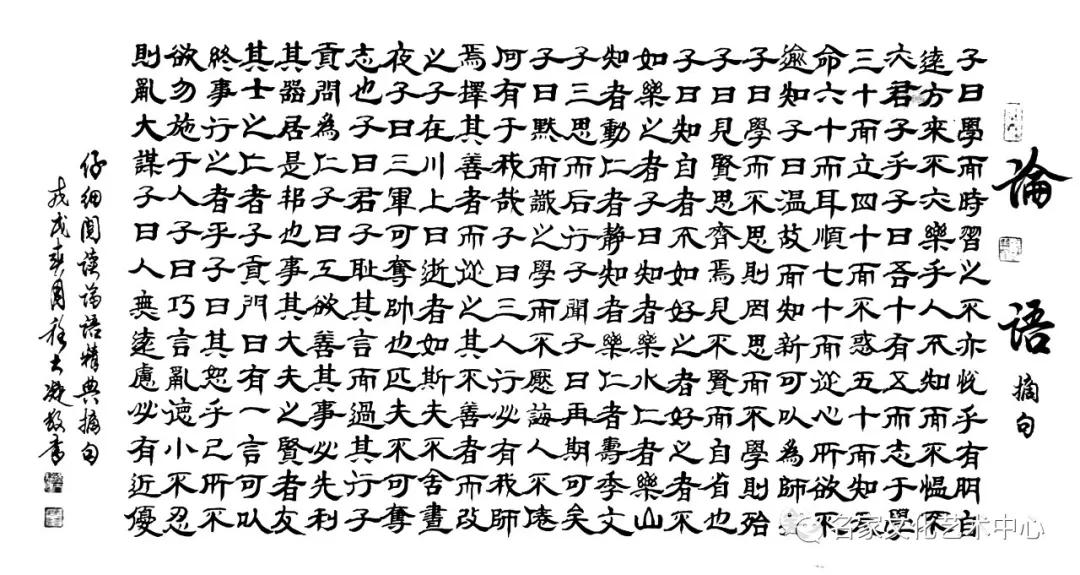 論語 摘句
子曰學而時習之不亦悅乎有朋自
遠方來不亦樂乎人不知而不慍不
亦君子乎子曰吾十有五而志于學
三十而立四十而不惑五十而知天
命六十而耳順七十而從心所欲不
逾知子曰温故而知新可以為師
子曰學而不思則罔思而不學則殆
子曰見賢思齊焉見不賢而自省也
子曰知自者不如好之者好之者不
如樂之者子曰知者樂水仁者樂山
知者動仁者静知者樂仁者壽季文
子三思而后行子聞子曰再期可矣
子曰默而識之學而不壓誨人不倦
何有于我哉子曰三人行必有我師
焉擇其善者而從之其不善者而改
之子在川上曰逝者如斯夫不舍晝
夜子曰三軍可奪帥也匹夫不可奪
志也子曰君子耻其言而過其行子
貢問為仁子曰工欲善其事必先利
其器居是邦也事其大夫之賢者友
其士之仁者子貢門曰有一言可以
終事行之者乎子曰其恕乎己所不
欲勿施于人子曰巧言亂德小不忍
則亂大謀子曰人無遠慮必有近優
仔細閱讀論語精典摘句
戊戌春月敬書
名家文化艺术中心